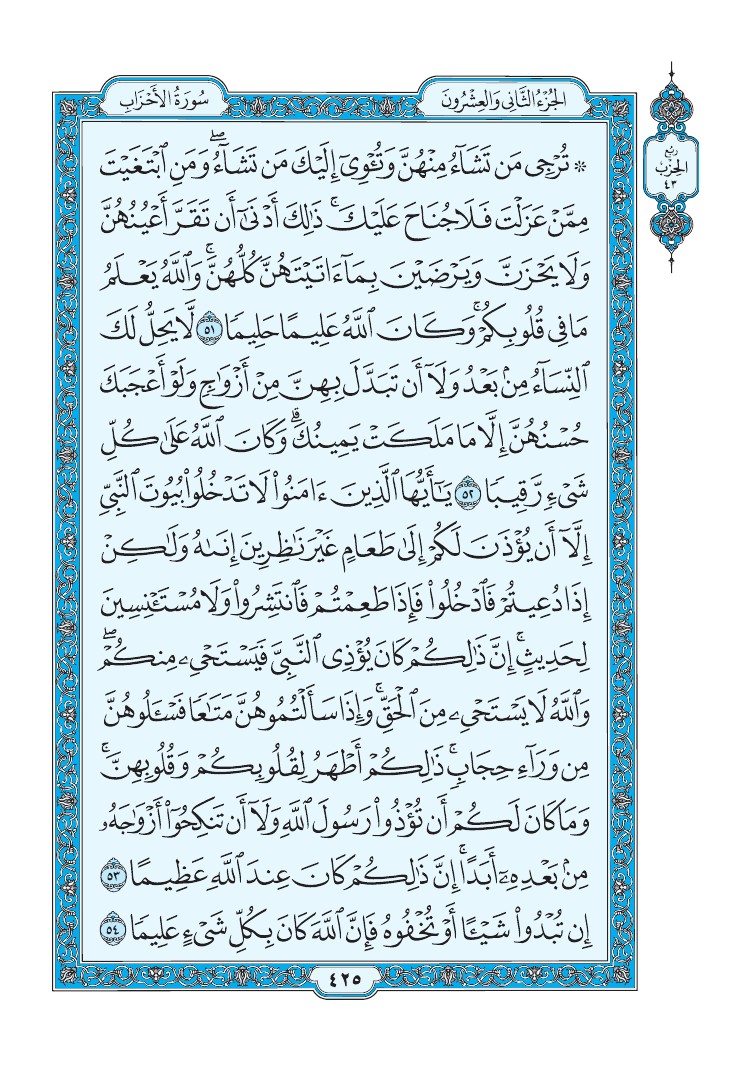 سُورَةُ الأَحْزَابِ
الجُزْءُ الثَّانِي وَالعِشْرُونَ
رُبع
الحِزْب
٤٣
۞ تُرْجِي مَن تَشَآءُ مِنْهُنَّ وَتُـْٔوِيٓ إِلَيْكَ مَن تَشَآءُۖ وَمَنِ ٱبْتَغَيْتَ
مِمَّنْ عَزَلْتَ فَلَا جُنَاحَ عَلَيْكَۚ ذَٰلِكَ أَدْنَىٰٓ أَن تَقَرَّ أَعْيُنُهُنَّ
وَلَا يَحْزَنَّ وَيَرْضَيْنَ بِمَآ ءَاتَيْتَهُنَّ كُلُّهُنَّۚ وَٱللَّهُ يَعْلَمُ
مَا فِي قُلُوبِكُمْۚ وَكَانَ ٱللَّهُ عَلِيمًا حَلِيمًا ٥١ لَّا يَحِلُّ لَكَ
ٱلنِّسَآءُ مِنۢ بَعْدُ وَلَآ أَن تَبَدَّلَ بِهِنَّ مِنْ أَزْوَٰجٍ وَلَوْ أَعْجَبَكَ
حُسْنُهُنَّ إِلَّا مَا مَلَكَتْ يَمِينُكَۗ وَكَانَ ٱللَّهُ عَلَىٰ كُلِّ
شَيْءٍ رَّقِيبًا ٥٢ يَٰٓأَيُّهَا ٱلَّذِينَ ءَامَنُوا۟ لَا تَدْخُلُوا۟ بُيُوتَ ٱلنَّبِيِّ
إِلَّآ أَن يُؤْذَنَ لَكُمْ إِلَىٰ طَعَامٍ غَيْرَ نَٰظِرِينَ إِنَىٰهُ وَلَٰكِنْ
إِذَا دُعِيتُمْ فَٱدْخُلُوا۟ فَإِذَا طَعِمْتُمْ فَٱنتَشِرُوا۟ وَلَا مُسْتَـْٔنِسِينَ
لِحَدِيثٍۚ إِنَّ ذَٰلِكُمْ كَانَ يُؤْذِي ٱلنَّبِيَّ فَيَسْتَحْيِۦ مِنكُمْۖ
وَٱللَّهُ لَا يَسْتَحْيِۦ مِنَ ٱلْحَقِّۚ وَإِذَا سَأَلْتُمُوهُنَّ مَتَٰعًا فَسْـَٔلُوهُنَّ
مِن وَرَآءِ حِجَابٍۚ ذَٰلِكُمْ أَطْهَرُ لِقُلُوبِكُمْ وَقُلُوبِهِنَّۚ
وَمَا كَانَ لَكُمْ أَن تُؤْذُوا۟ رَسُولَ ٱللَّهِ وَلَآ أَن تَنكِحُوٓا۟ أَزْوَٰجَهُۥ
مِنۢ بَعْدِهِۦٓ أَبَدًاۚ إِنَّ ذَٰلِكُمْ كَانَ عِندَ ٱللَّهِ عَظِيمًا ٥٣
إِن تُبْدُوا۟ شَيْـًٔا أَوْ تُخْفُوهُ فَإِنَّ ٱللَّهَ كَانَ بِكُلِّ شَيْءٍ عَلِيمًا ٥٤
٤٢٥